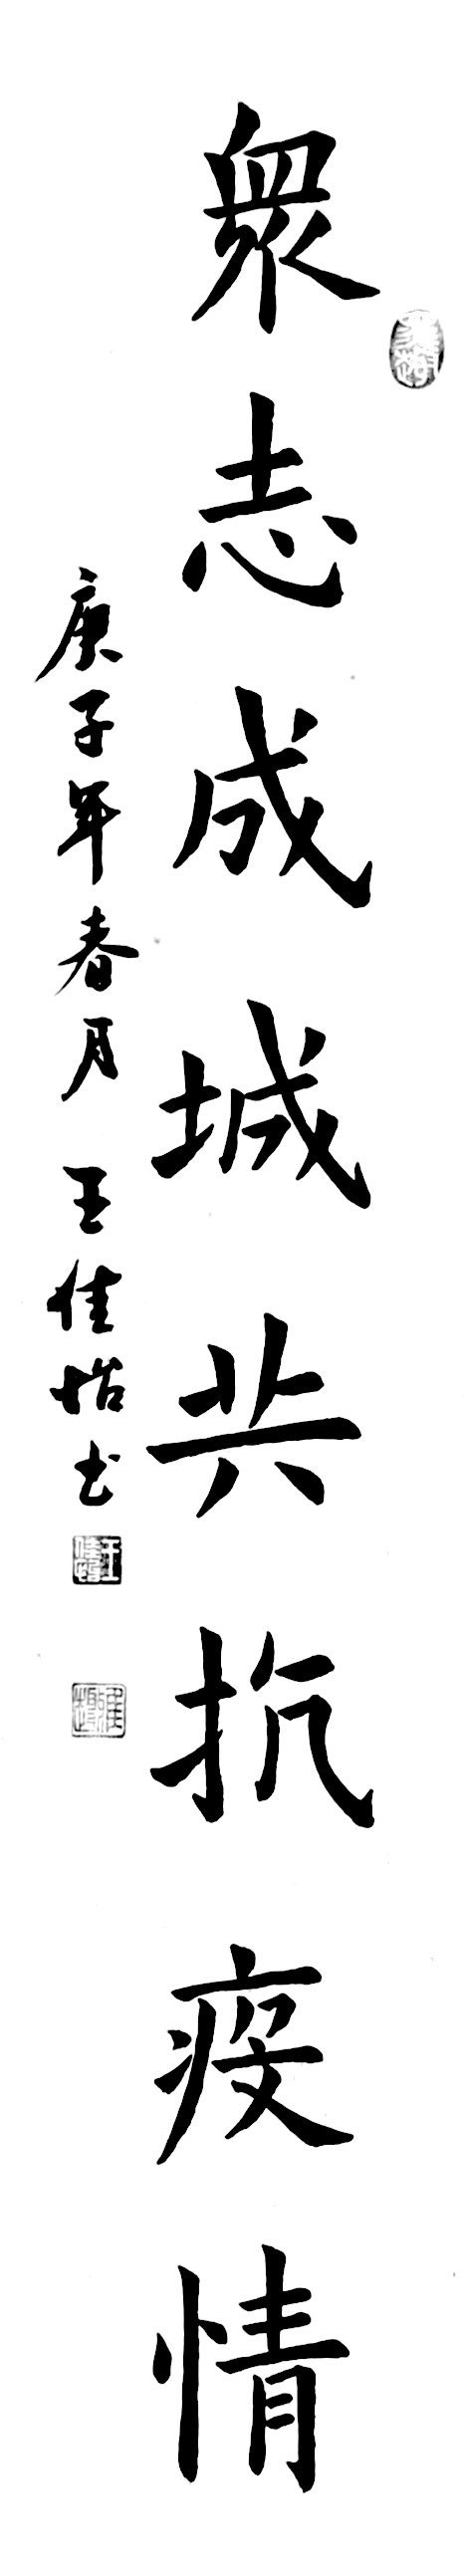 眾志成城共抗疫情
庚子年春月 王佳怡书